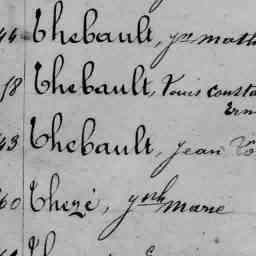 44 Thebault, yve math
58 Thebault, Louis consta
Erm
43 Thebault, Jean
60 Thezé, yph marie